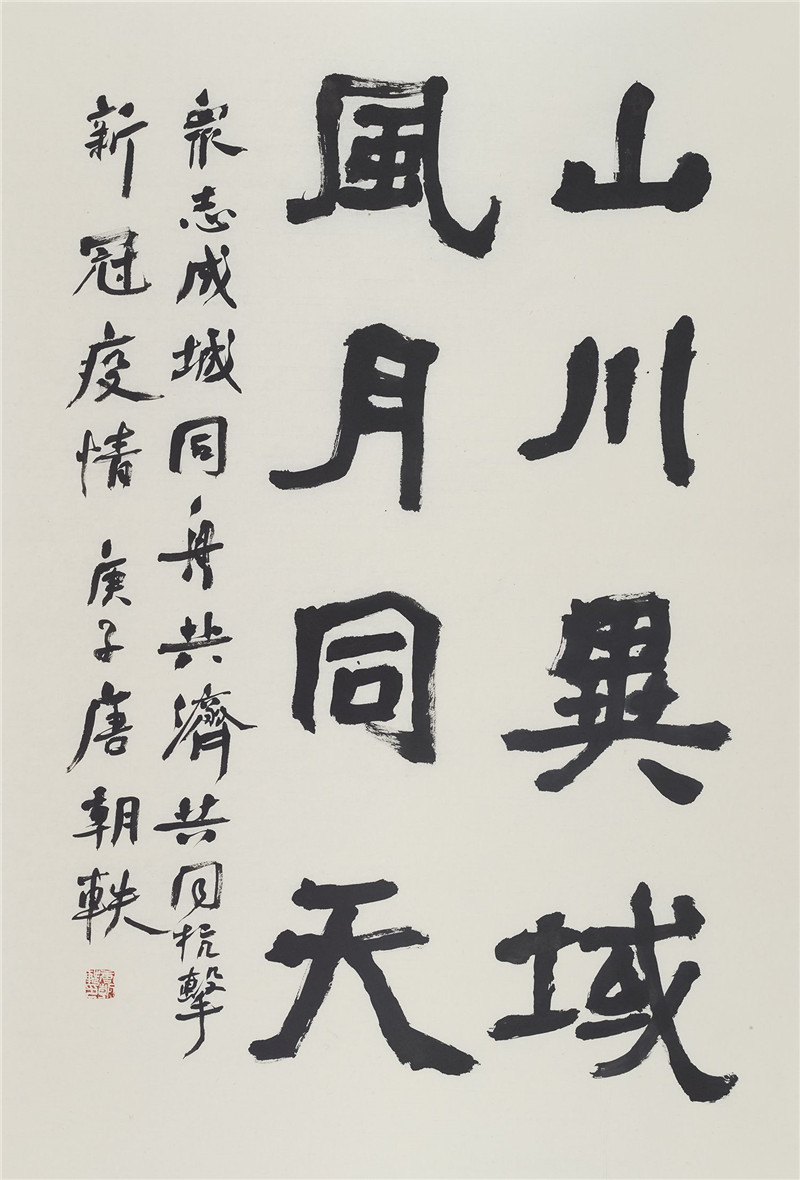 山川異域
風月同天
衆志成城同舟共濟共同抗擊
新冠疫情 庚子唐朝軼